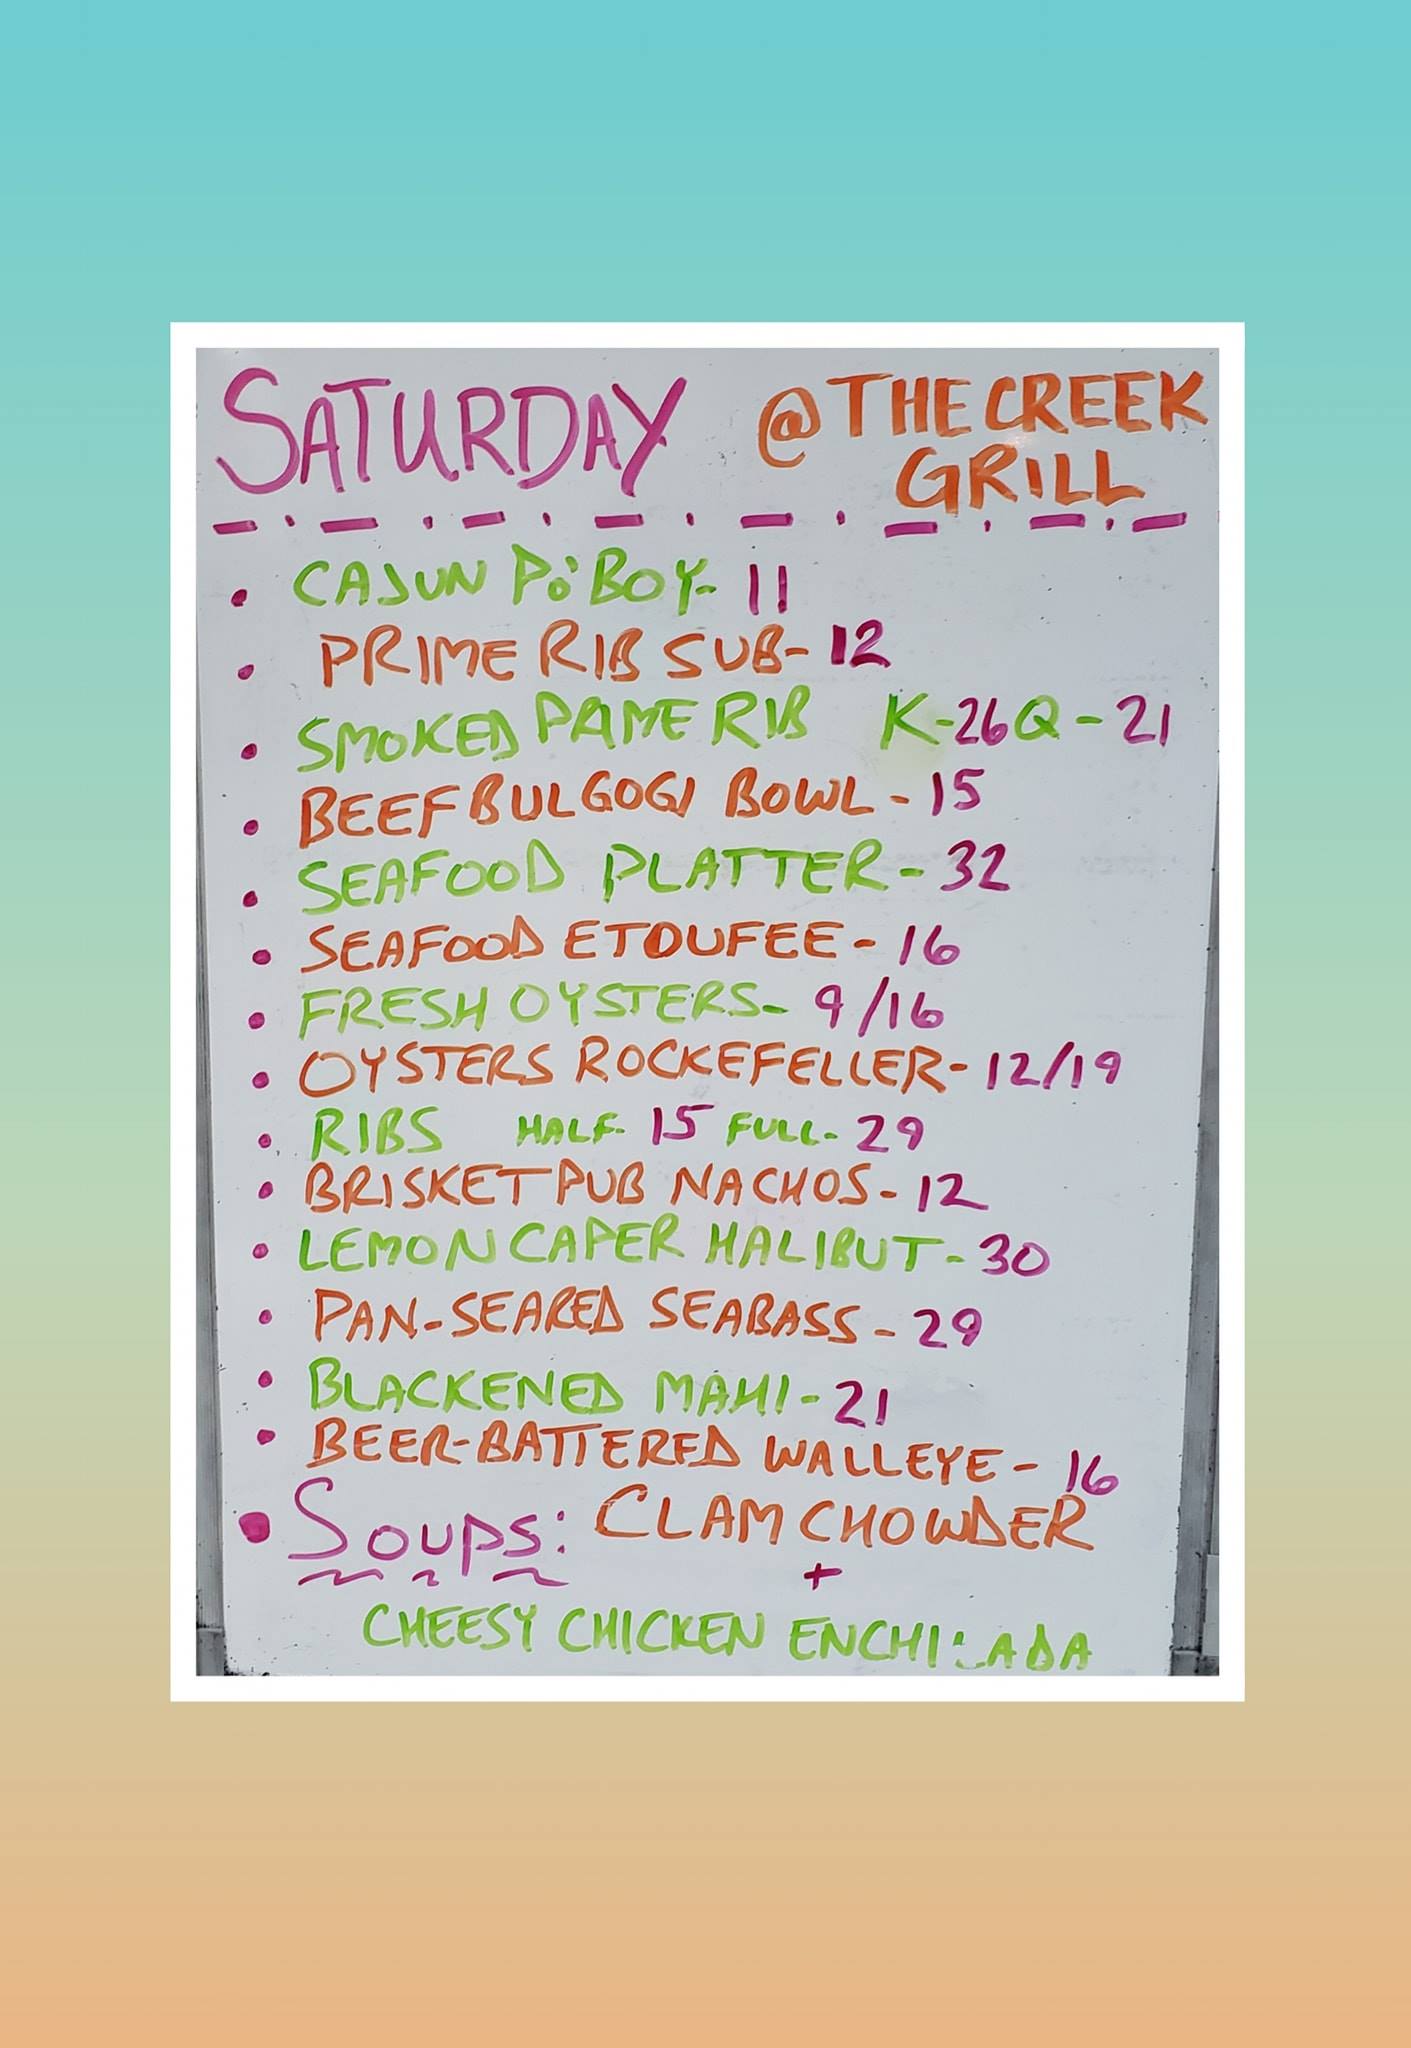 SATURDAY @ THE CREEK
GRILL
• CAJUN PO'BOY- 11
• PRIME RIB SUB- 12
• SMOKED PRIME RIB K-26 Q-21
• BEEF BULGOGI BOWL - 15
• SEAFOOD PLATTER - 32
• SEAFOOD ETOUFEE - 16
• FRESH OYSTERS- 9/16
• OYSTERS ROCKEFELLER- 12/19
• RIBS HALF- 15 FULL- 29
• BRISKET PUB NACHOS- 12
• LEMON CAPER HALIBUT - 30
• PAN-SEARED SEABASS - 29
• BLACKENED MAHI - 21
• BEER-BATTERED WALLEYE - 16
• SOUPS: CLAM CHOWDER
+
CHEESY CHICKEN ENCHILADA